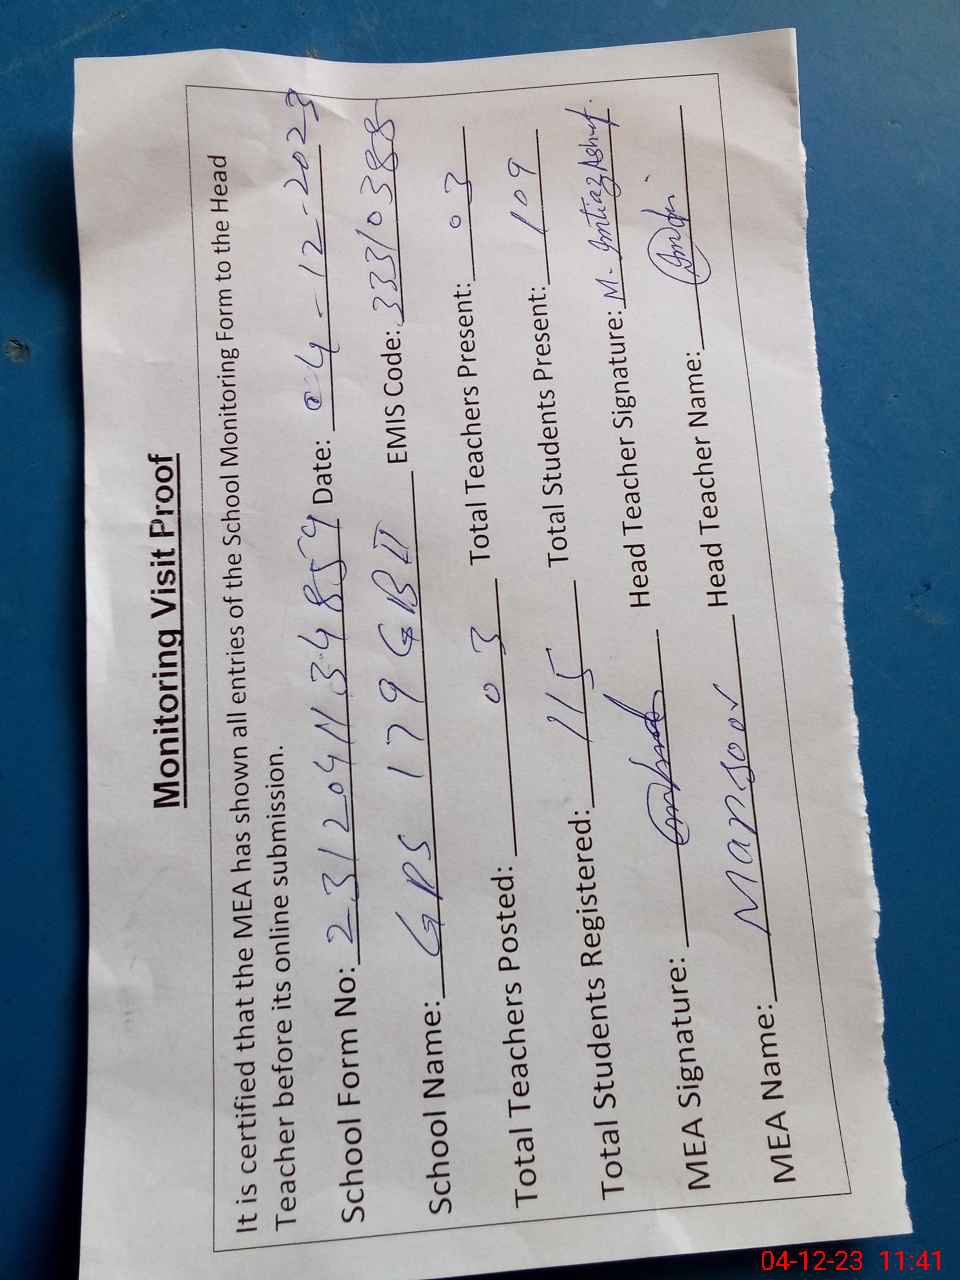 Monitoring Visit Proof
It is certified that the MEA has shown all entries of the School Monitoring Form to the Head
Teacher before its online submission.
School Form No: 231204N34859 Date: 04-12-2023
School Name: GPS 179 GB II EMIS Code: 33310388
Total Teachers Posted: 03 Total Teachers Present: 03
Total Students Registered: 115 Total Students Present: 109
MEA Signature: Head Teacher Signature: M. Imtiaz Ashraf.
MEA Name: Mansoor Head Teacher Name:
04-12-23 11:41